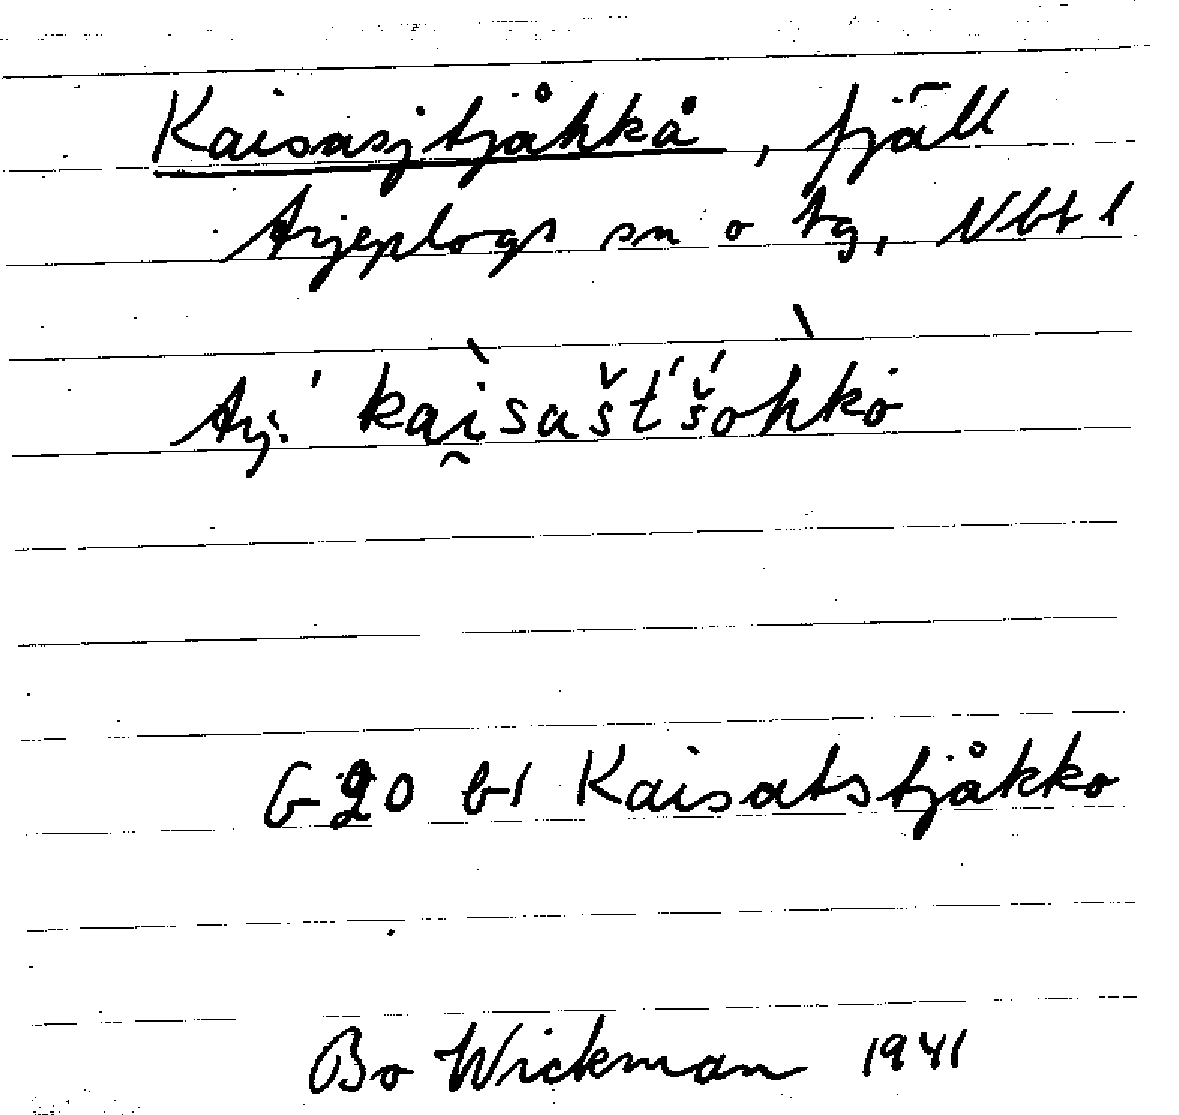 Kaisasjtjåhkå, fjäll
Arjeplogs sn o tg, Nbt l
Arj. ˈkaì̯sašt́š́ohkò
G 20 bl Kaisatstjåkko
Bo Wickman 1941